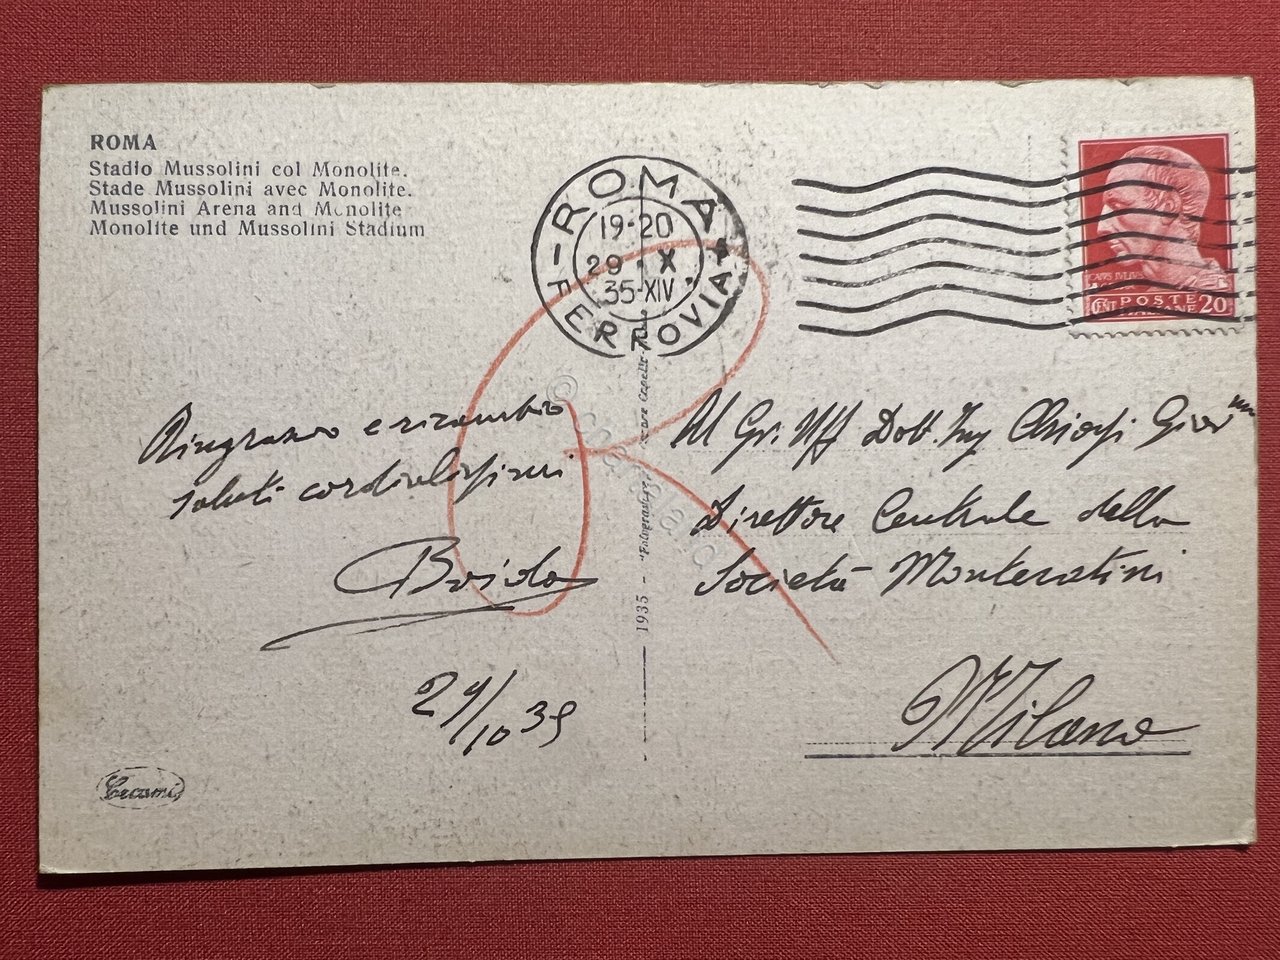 ROMA
Stadio Mussolini col Monolite.
Stade Mussolini avec Monolite.
Mussolini Arena and Monolite
Monolite und Mussolini Stadium
ROMA
19-20
29 X
35-XIV
FERROVIA
POSTE
CENT ITALIANE 20
Ringrazio e ricambio
saluti cordialissimi
29/10 35
1935 - "Fotografure"
Al Gr. Uff Dott. Ing
Direttore Centrale della
Società Montecatini
Milano
Cecami